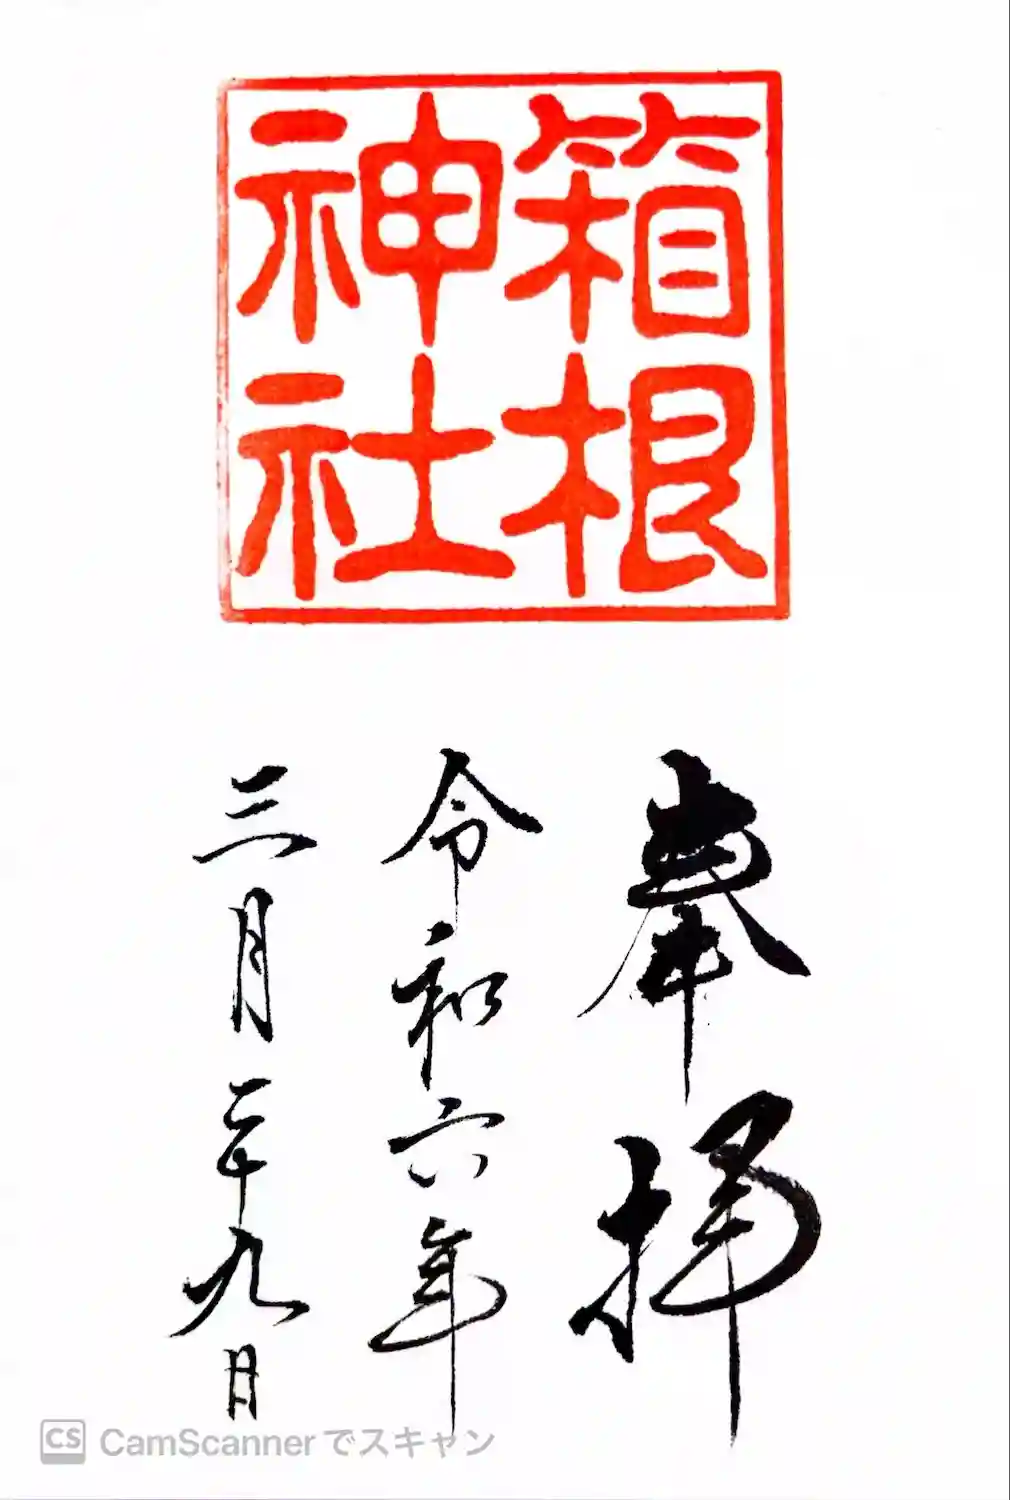 箱根
神社
奉拝
令和六年
三月二十九日
CS CamScannerでスキャン